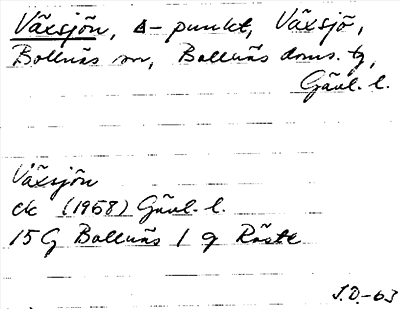 Växsjön, Δ-punkt, Växsjö,
Bollnäs sn, Bollnäs doms. tg,
Gävl. l.
Växsjön
ek (1958) Gävl. l.
15G Bollnäs 1 g Röste
J.D.-63